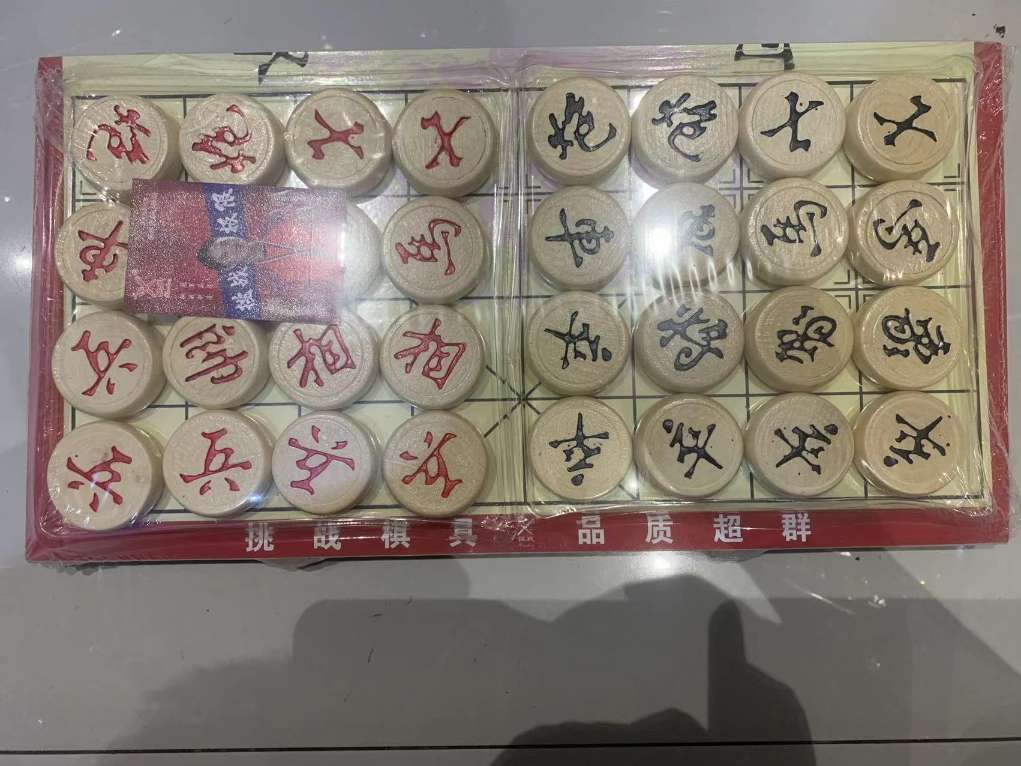 炮 炮 士 士 炮 炮 士 士
馬 車 馬 馬
兵 帥 相 相 卒 將 象 象
兵 兵 兵 兵 卒 卒 卒 卒
挑战棋具 品质超群